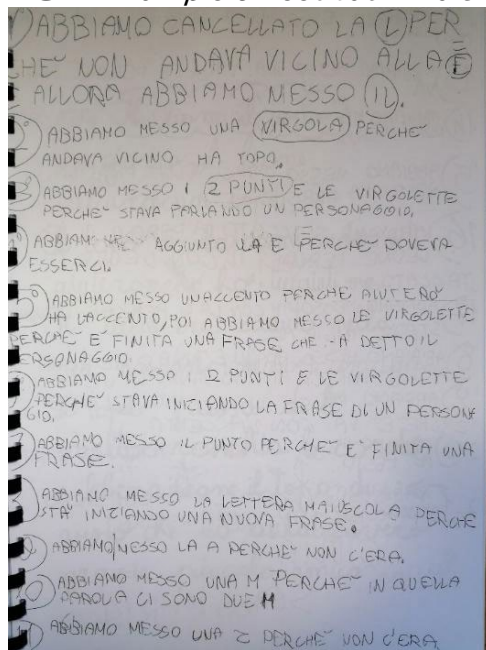 1) ABBIAMO CANCELLATO LA L PER
CHE' NON ANDAVA VICINO ALLA E
E ALLORA ABBIAMO MESSO IL.
2°) ABBIAMO MESSO UNA VIRGOLA PERCHE'
ANDAVA VICINO HA TOPO.
3°) ABBIAMO MESSO I 2 PUNTI E LE VIRGOLETTE
PERCHE' STAVA PARLANDO UN PERSONAGGIO.
4°) ABBIAM AGGIUNTO LA E PERCHE' DOVEVA
ESSERCI.
5°) ABBIAMO MESSO UNACCENTO PERCHE AIUTERO'
HA LACCENTO, POI ABBIAMO MESSO LE VIRGOLETTE
PERCHE' E' FINITA UNA FRASE CHE A DETTO IL
PERSONAGGIO.
ABBIAMO MESSO I 2 PUNTI E LE VIRGOLETTE
PERCHE' STAVA INIZIANDO LA FRASE DI UN PERSONAG
GIO.
7) ABBIAMO MESSO IL PUNTO PERCHE' E' FINITA UNA
FRASE.
ABBIAMO MESSO LA LETTERA MAIUSCOLA PERCHE
STA' INIZIANDO UNA NUOVA FRASE.
ABBIAMO MESSO LA A PERCHE' NON C'ERA.
10) ABBIAMO MESSO UNA M PERCHE' IN QUELLA
PAROLA CI SONO DUE M
11) ABBIAMO MESSO UNA Z PERCHE' NON C'ERA